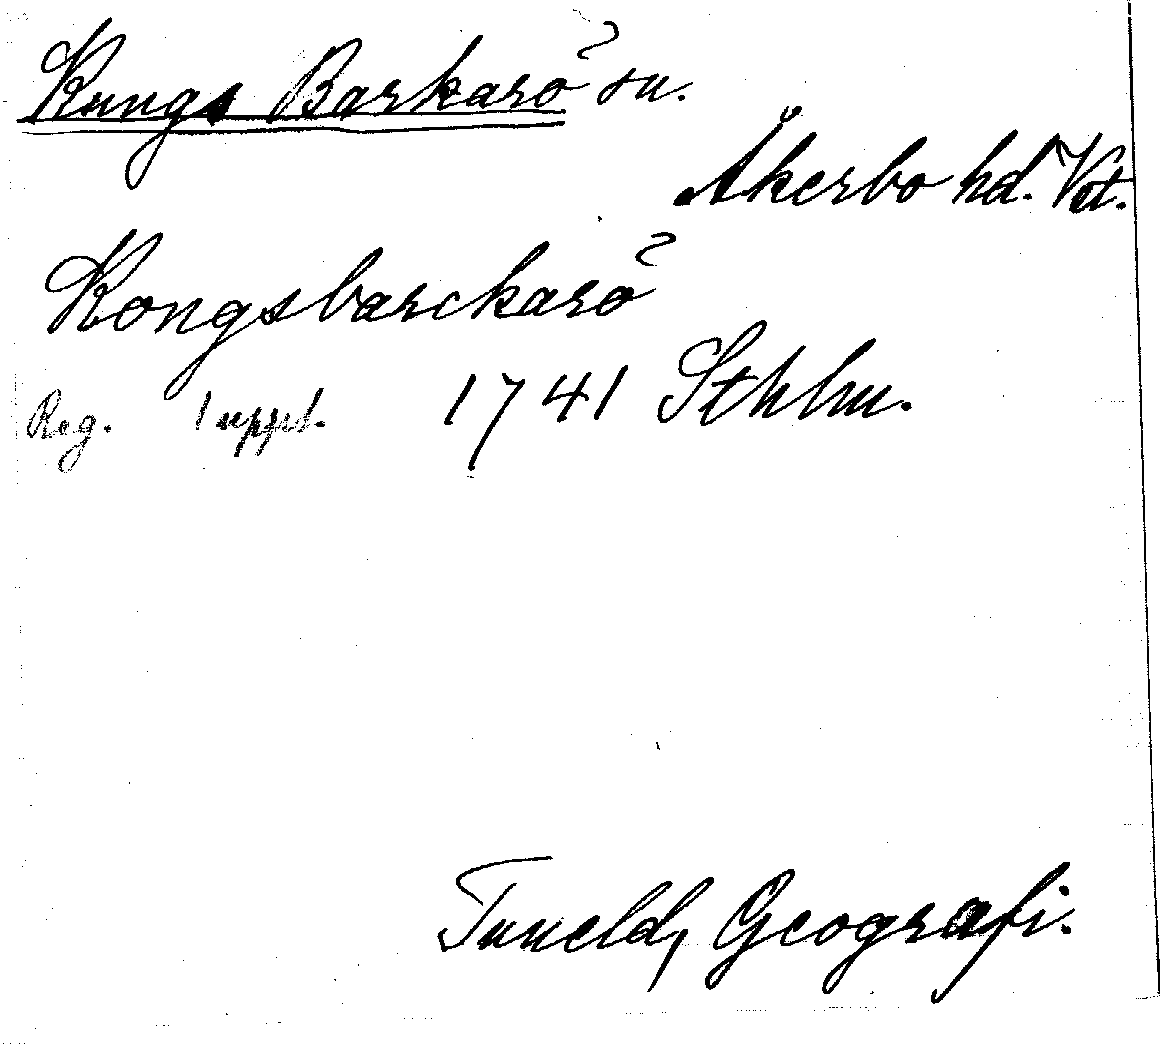 Kungs Barkarö sn.
Åkerbo hd. Vst.
Kongsbarckarö
Reg. 1 uppl. 1741 Sthlm.
Tuneld, Geografi.